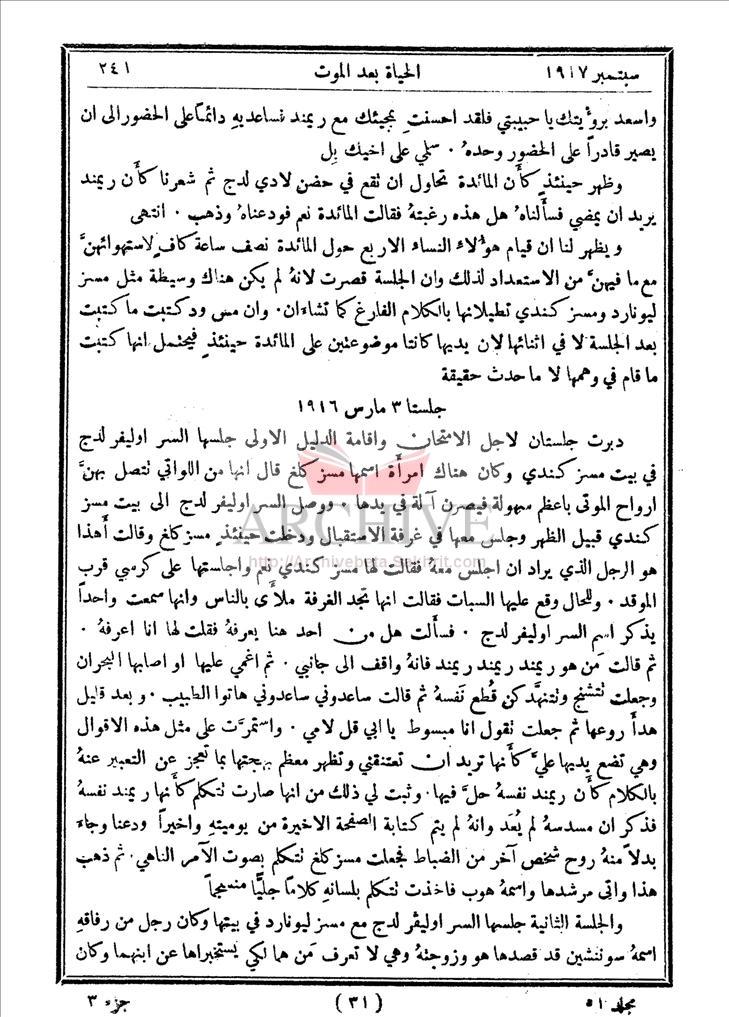 سبتمبر ١٩١٧ الحياة بعد الموت ٢٤١
واسعد برؤيتك يا حبيبتي فلقد احسنتِ بمجيئك مع ريمند تساعديهِ دائماً على الحضور الى ان
يصير قادراً على الحضور وحدهُ ٠ سلمي على اخيك بِل
وظهر حينئذٍ كأن المائدة تحاول ان تقع في حضن لادي لدج ثم شعرنا كأن ريمند
يريد ان يمضي فسألناهُ هل هذه رغبتهُ فقالت المائدة نعم فودعناهُ وذهب ٠ انتهى
و يظهر لنا ان قيام هؤلاء النساء الاربع حول المائدة نصف ساعة كافٍ لاستهوائهنَّ
مع ما فيهنَّ من الاستعداد لذلك وان الجلسة قصرت لانهُ لم يكن هناك وسيطة مثل مسز
ليونارد ومسز كندي تطيلانها بالكلام الفارغ كما تشاءَان ٠ وان مس ود كتبت ما كتبت
بعد الجلسة لا في اثنائها لان يديها كانتا موضوعتين على المائدة حينئذٍ فيحتمل انها كتبت
ما قام في وهمها لا ما حدث حقيقة
جلستا ٣ مارس ١٩١٦
دبرت جلستان لاجل الامتحان واقامة الدليل الاولى جلسها السر اوليفر لدج
في بيت مسز كندي وكان هناك امرأَة اسمها مسز كلغ قال انها من اللواتي نتصل بهنَّ
ارواح الموتى باعظم سهولة فيصرن آلة في يدها ٠ ووصل السر اوليفر لدج الى بيت مسز
كندي قبيل الظهر وجلس معها في غرفة الاستقبال ودخلت حينئذٍ مسز كلغ وقالت أَهذا
هو الرجل الذي يراد ان اجلس معهُ فقالت لها مسز كندي نعم واجلستها على كرسي قرب
الموقد ٠ وللحال وقع عليها السبات فقالت انها تجد الغرفة ملأَى بالناس وانها سمعت واحداً
يذكر اسم السر اوليفر لدج ٠ فسألت هل من احد هنا يعرفهُ فقلت لها انا اعرفهُ ٠
ثم قالت مَن هو ريمند ريمند ريمند فانهُ واقف الى جانبي ٠ ثم اغمي عليها او اصابها البحران
وجعلت نتشنج ونتنهَّد كمن قُطع نَفسهُ ثم قالت ساعدوني ساعدوني هاتوا الطبيب ٠ و بعد قليل
هدأَ روعها ثم جعلت نقول انا مبسوط يا ابي قل لامي ٠ واستمرَّت على مثل هذه الاقوال
وهي تضع يديها عليَّ كأنها تريد ان تعتنقني وتظهر معظم بهجتها بما تعجز عن التعبير عنهُ
بالكلام كأن ريمند نفسهُ حلَّ فيها ٠ وثبت لي ذلك من انها صارت نتكلم كأنها ريمند نفسهُ
فذكر ان مسدسهُ لم يُعَد وانهُ لم يتم كتابة الصفحة الاخيرة من يوميتهِ واخيراً ودعنا وجاءَ
بدلاً منهُ روح شخص آخر من الضباط فجعلت مسز كلغ نتكلم بصوت الآمر الناهي ٠ ثم ذهب
هذا واتى مرشدها واسمهُ هوب فاخذت نتكلم بلسانهِ كلاماً جليًّا منسجماً
والجلسة الثانية جلسها السر اوليفر لدج مع مسز ليونارد في بيتها وكان رجل من رفاقهِ
اسمهُ سوننشين قد قصدها هو وزوجتهُ وهي لا تعرف مَن هما لكي يستخبراها عن ابنهما وكان
مجلد ٥١ (٣١) جزء ٣
ARCHIVE
http://Archivebeta.Sakhrit.com